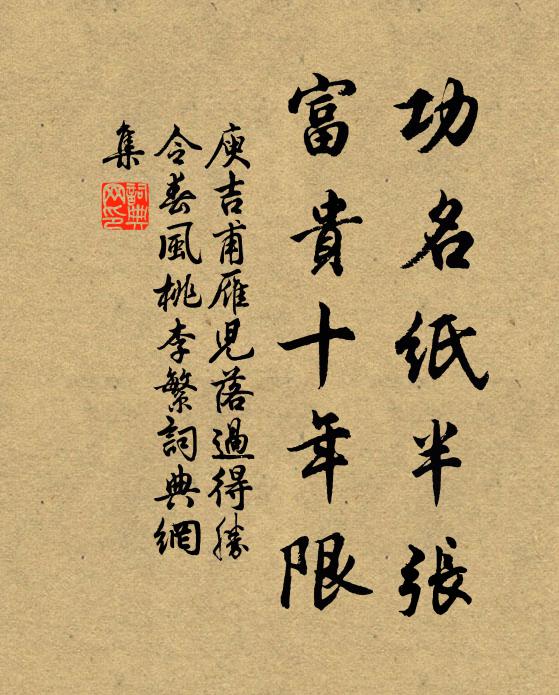 功名紙半張
富貴十年限
庾吉甫雁兒落過得勝
令春風桃李繁詞典網
集
詞典
网印